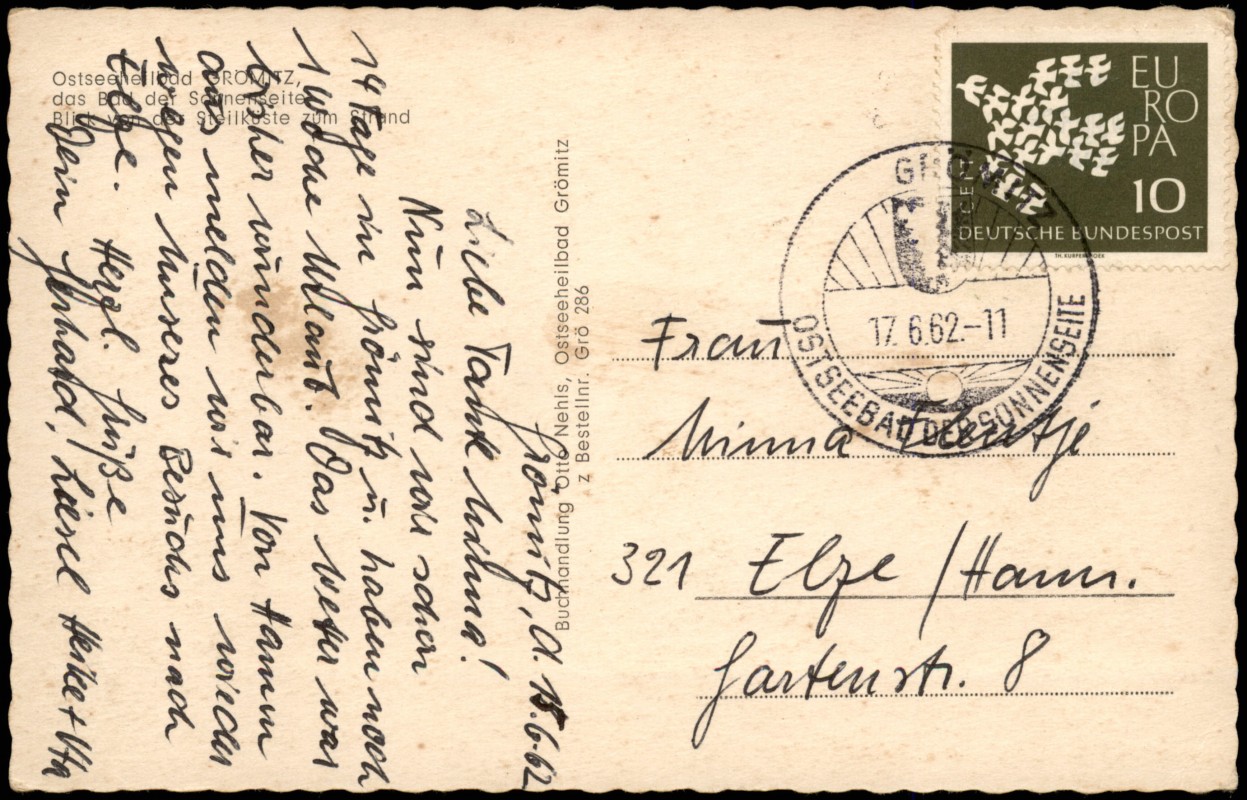 Ostseeheilbad GRÖMITZ,
das Bad der Sonnenseite
Blick von der Steilküste zum Strand
Grömitz, d. 15.6.62
Liebe Tante Minna!
Nun sind wir schon
14 Tage in Grömitz u. haben noch
1 Woche Urlaub. Das Wetter war
bisher wunderbar. Von Hann
aus melden wir uns wieder
wegen Unseres Besuchs nach
Elze. Herzl. Grüße
Dein Gerhard, Liesel Heike + Uta
Buchhandlung Otto Nehls, Ostseeheilbad Grömitz
z Bestellnr. Grö 286
EU
RO
PA
10
DEUTSCHE BUNDESPOST
GRÖMITZ
17.6.62.-11
OSTSEEBAD DER SONNENSEITE
Frau
Minna
321 Elze / Hann.
Gartenstr. 8